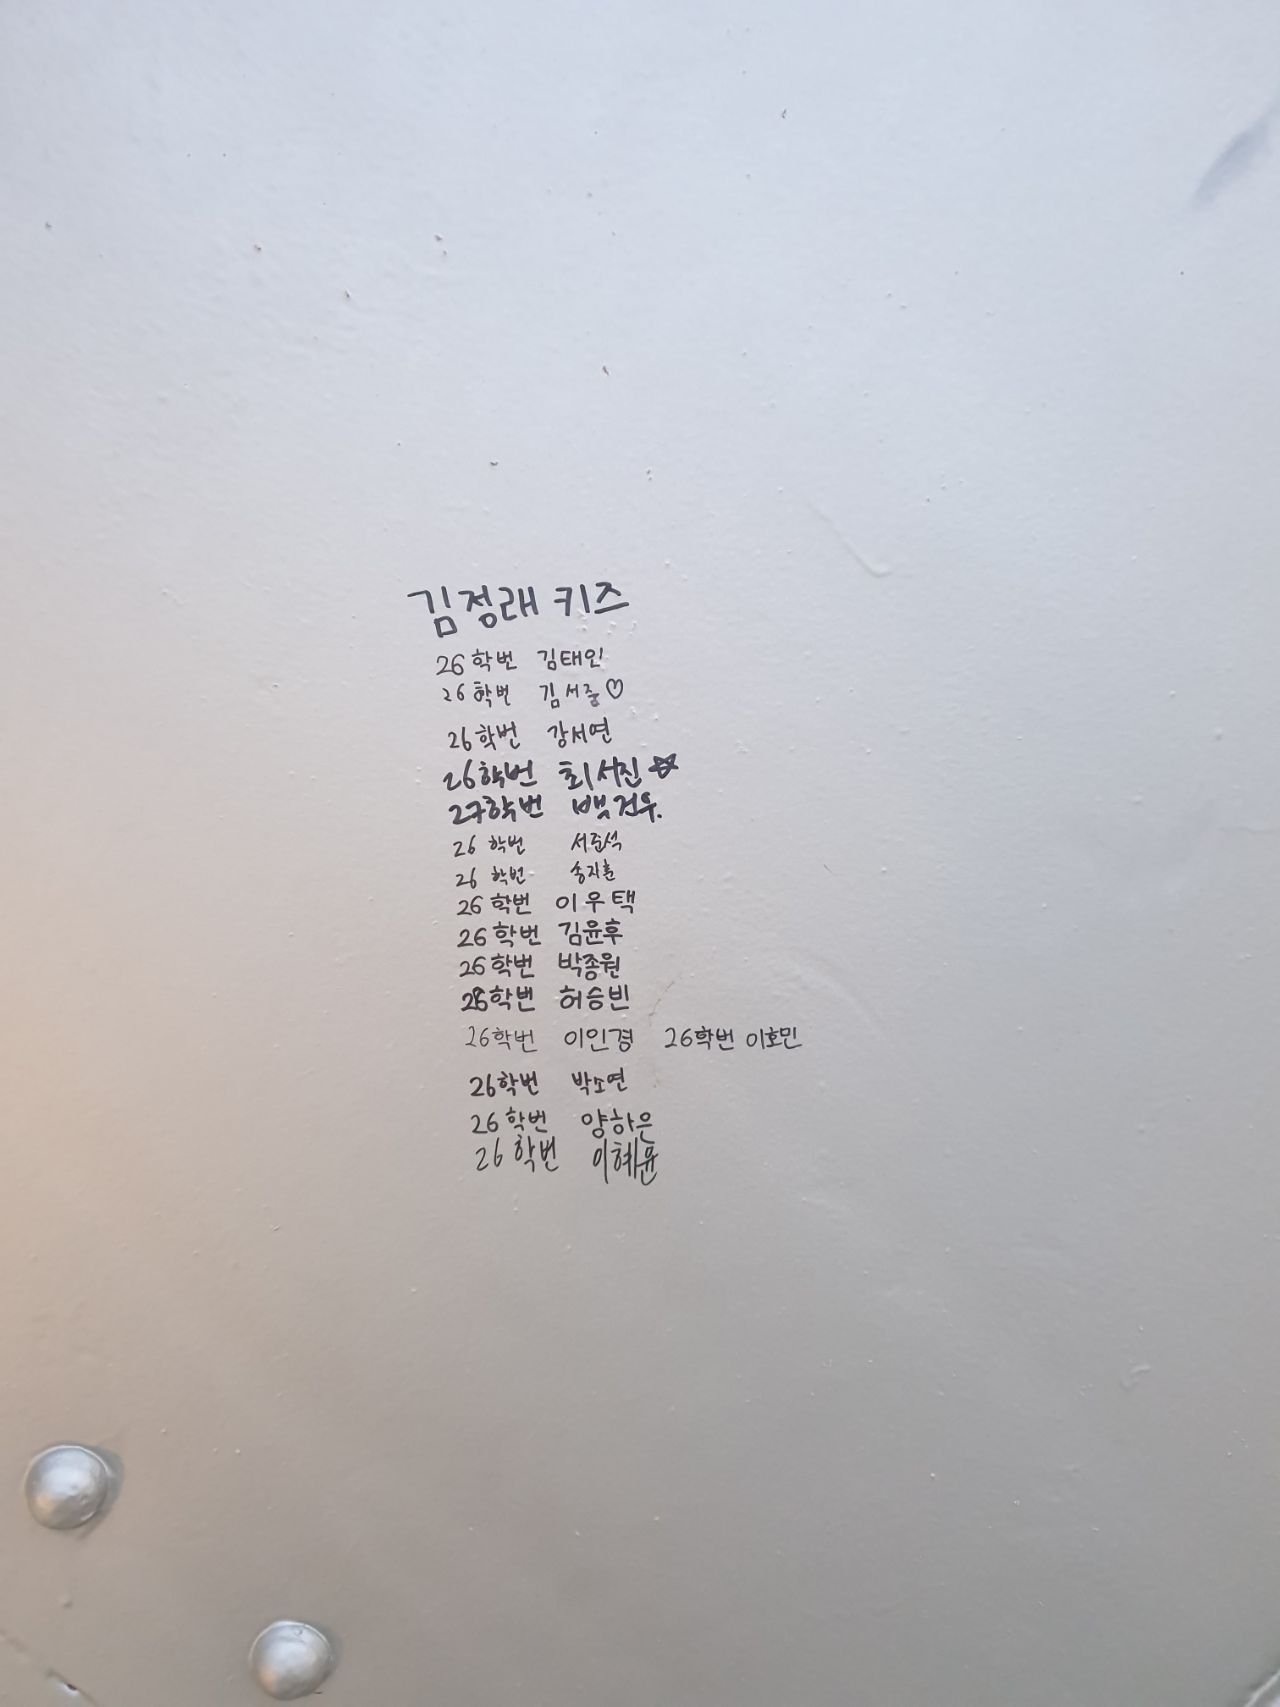 김정래 키즈
26학번 김태인
26학번 김서중♡
26학번 강서연
26학번 최서진☆
27학번 백건우.
26학번 서준석
26학번 송지훈
26학번 이우택
26학번 김윤후
26학번 박종원
26학번 허승빈
26학번 이인경 26학번 이호민
26학번 박소연
26학번 양하은
26학번 이혜윤